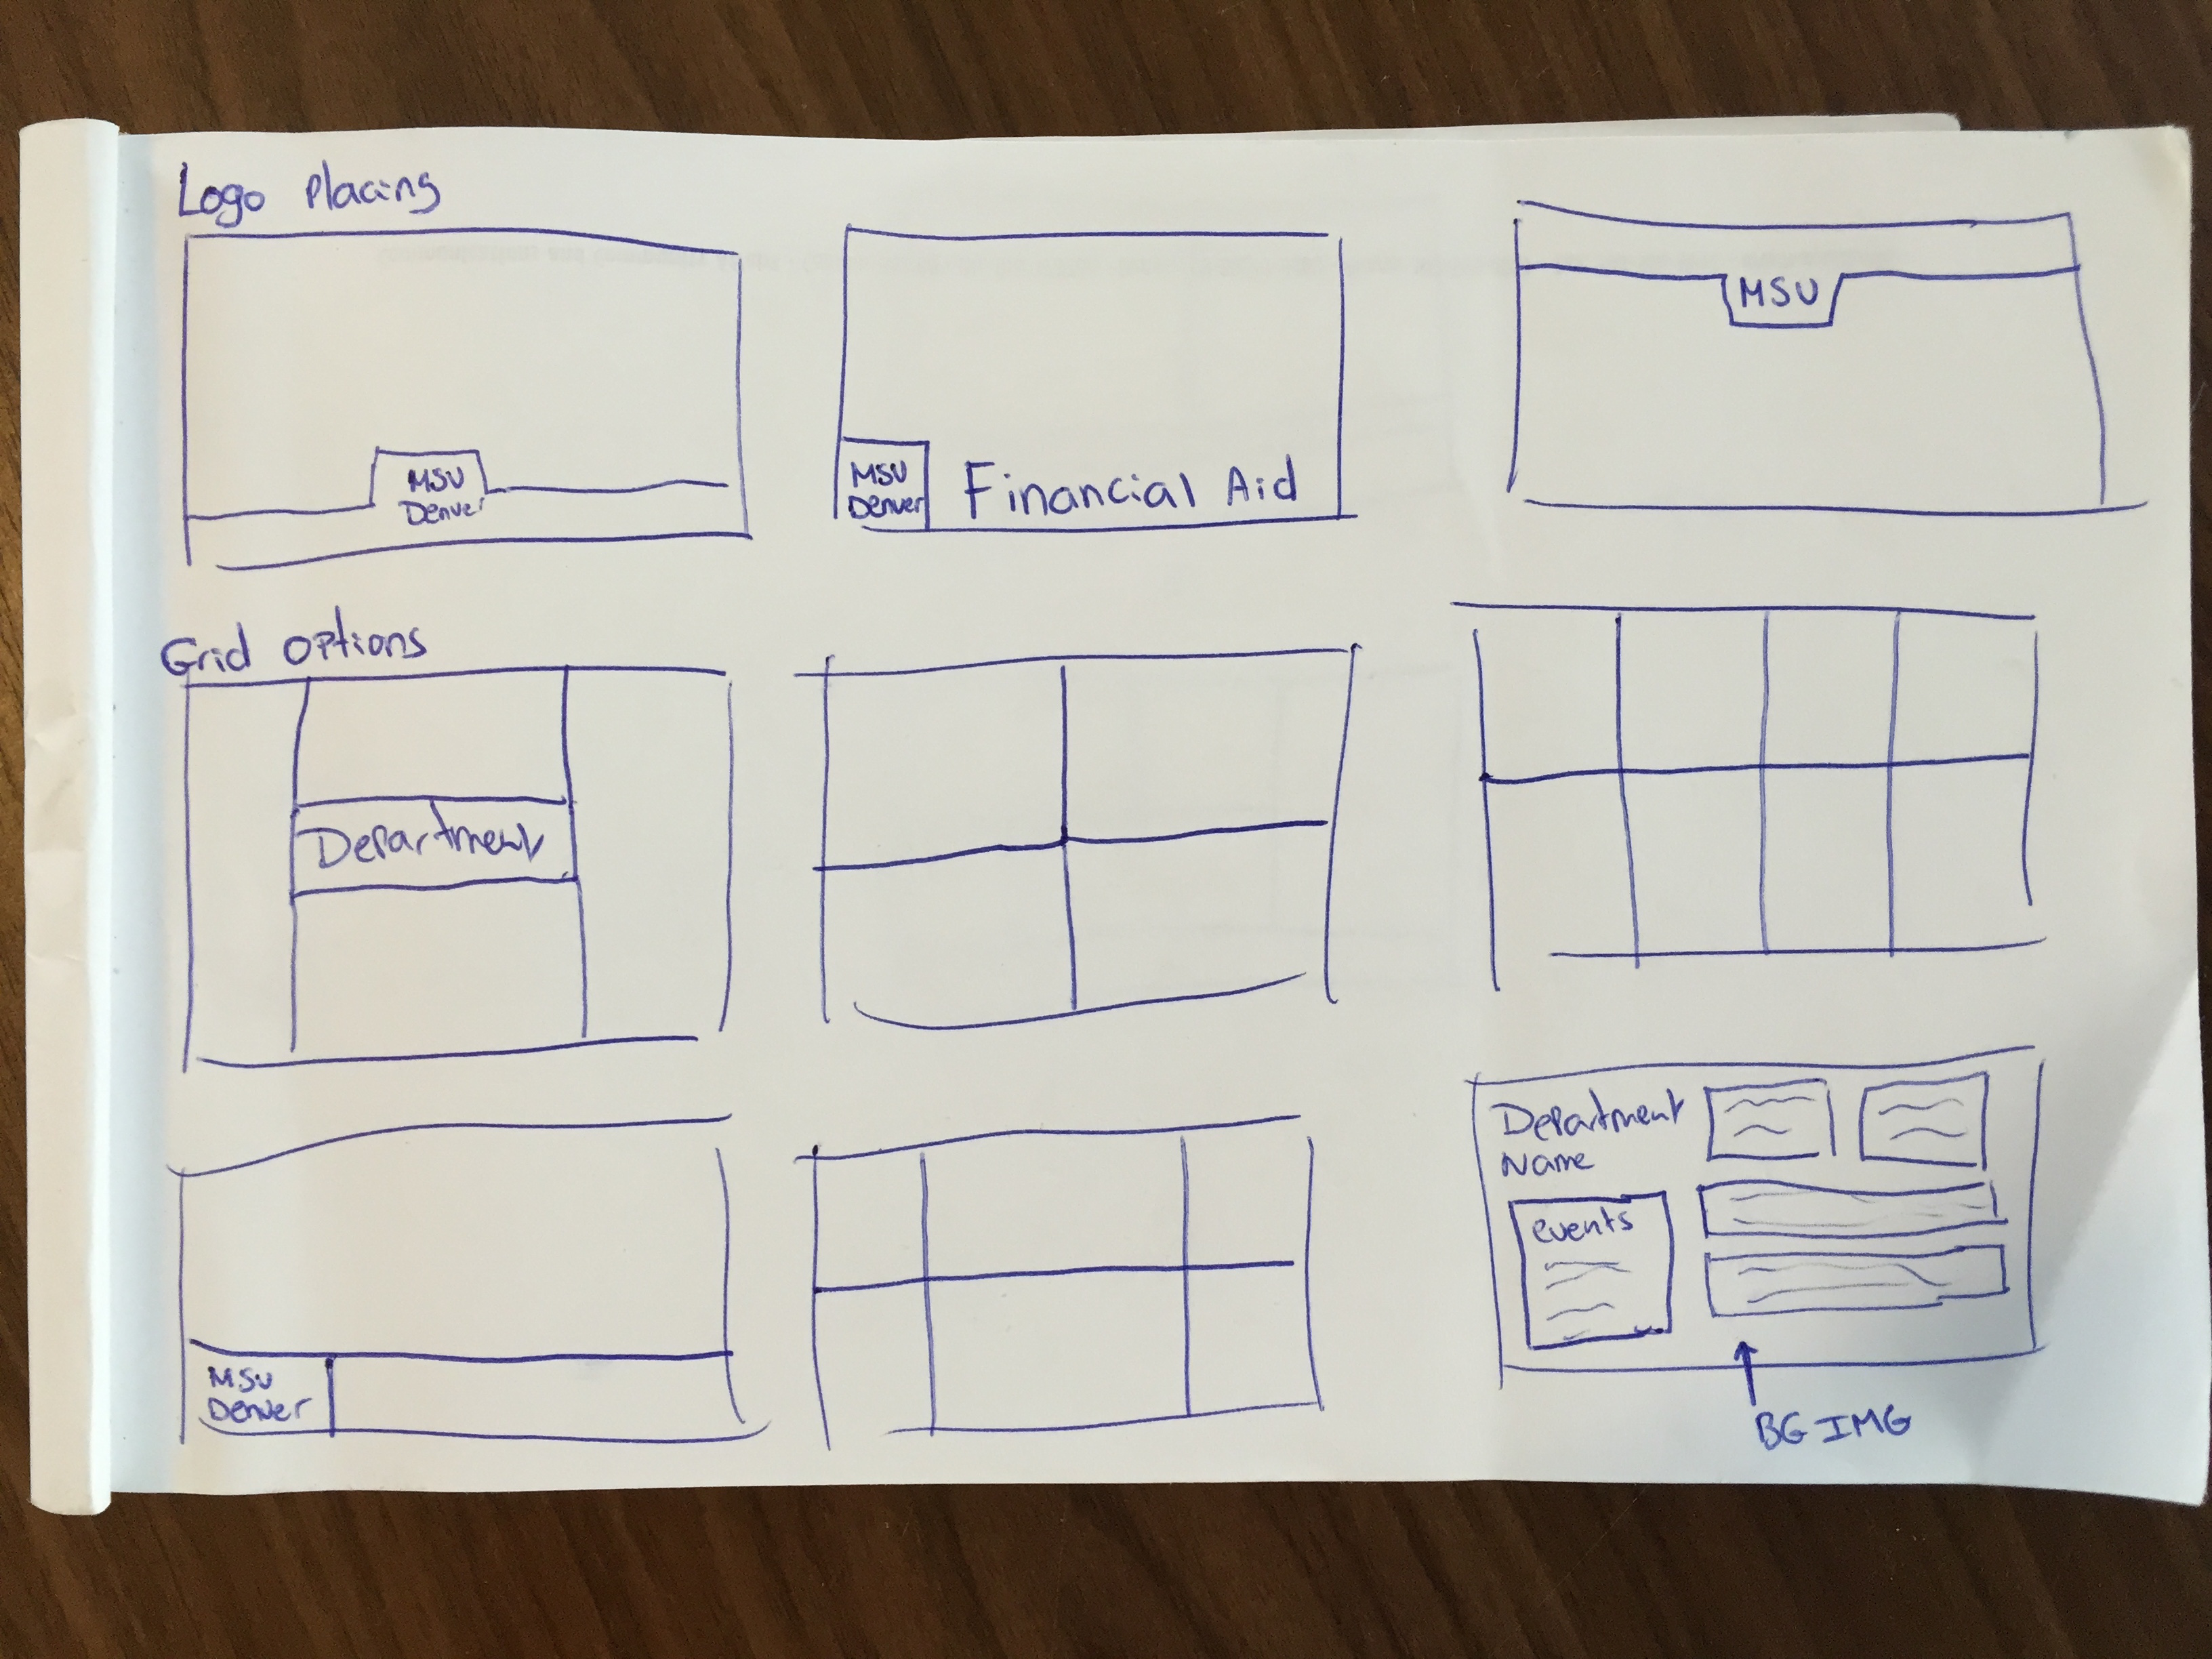 Logo Placing
MSU
Denver
MSU
Denver
Financial Aid
MSU
Grid Options
Department
MSU
Denver
Department
Name
events
BG IMG